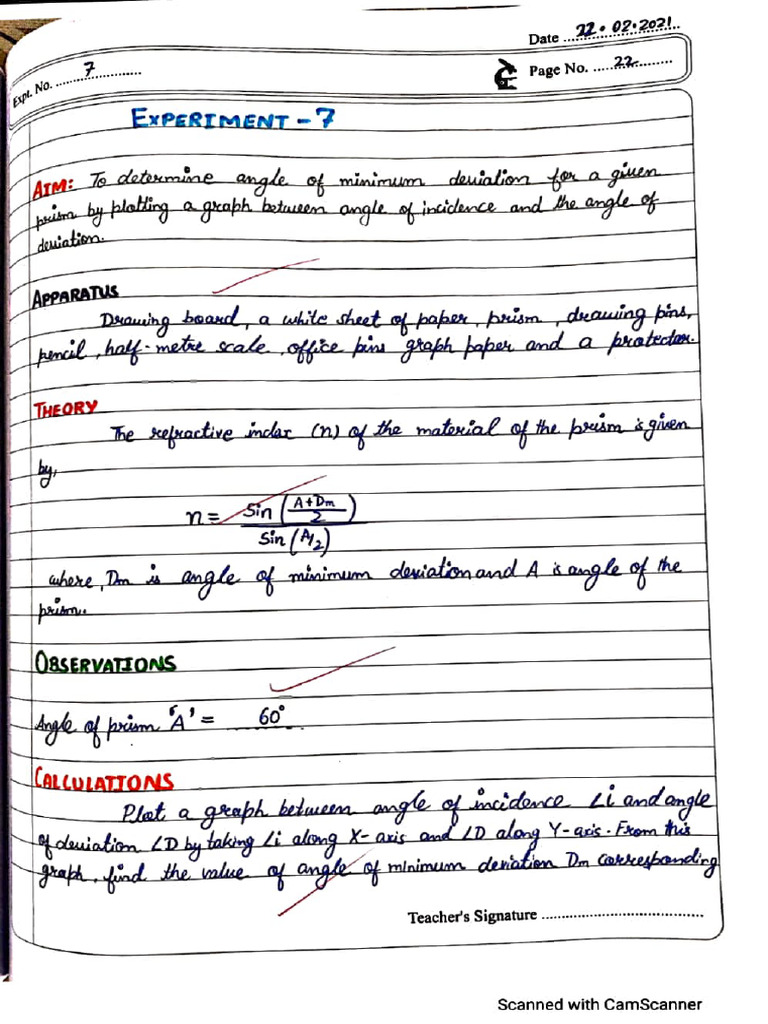 Date 22.02.2021
Expt. No. 7
Page No. 22
EXPERIMENT - 7
AIM: To determine angle of minimum deviation for a given
prism by plotting a graph between angle of incidence and the angle of
deviation.
APPARATUS
Drawing board, a white sheet of paper, prism, drawing pins,
pencil, half-metre scale, office pins graph paper and a protector.
THEORY
The refractive index (n) of the material of the prism is given
by,
n = Sin (A+Dm/2)
Sin (A/2)
where, Dm is angle of minimum deviation and A is angle of the
prism.
OBSERVATIONS
Angle of prism 'A' = 60°
CALCULATIONS
Plot a graph between angle of incidence ∠i and angle
of deviation ∠D by taking ∠i along X-axis and ∠D along Y-axis. From this
graph, find the value of angle of minimum deviation Dm corresponding
Teacher's Signature
Scanned with CamScanner